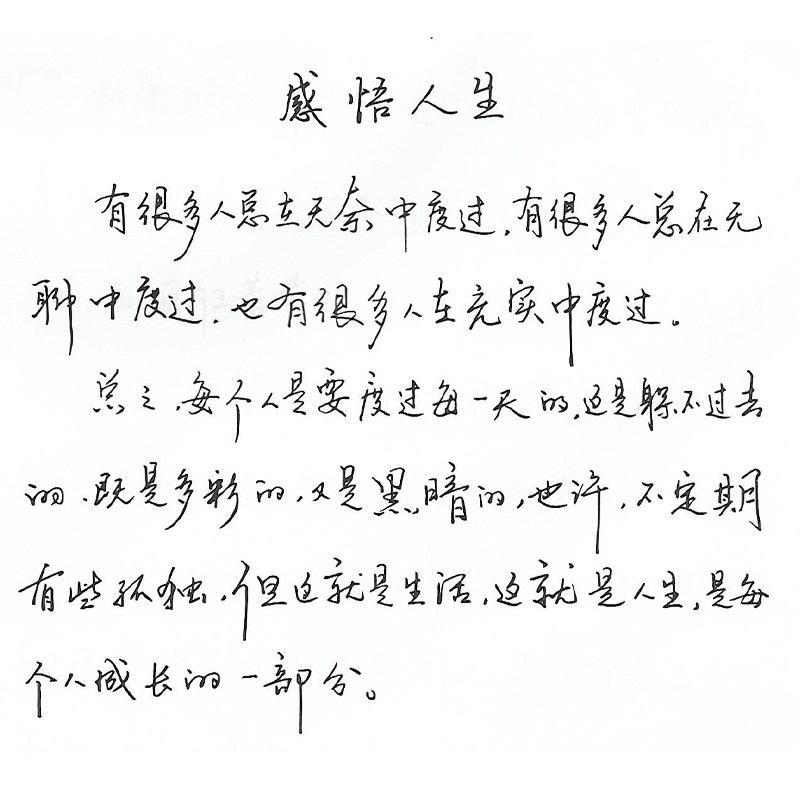 感悟人生
有很多人总在无奈中度过，有很多人总在无
聊中度过，也有很多人在充实中度过。
总之，每个人是要度过每一天的，这是躲不过去
的，既是多彩的，又是黑暗的，也许，不定期
有些孤独，但这就是生活，这就是人生，是每
个人成长的一部分。